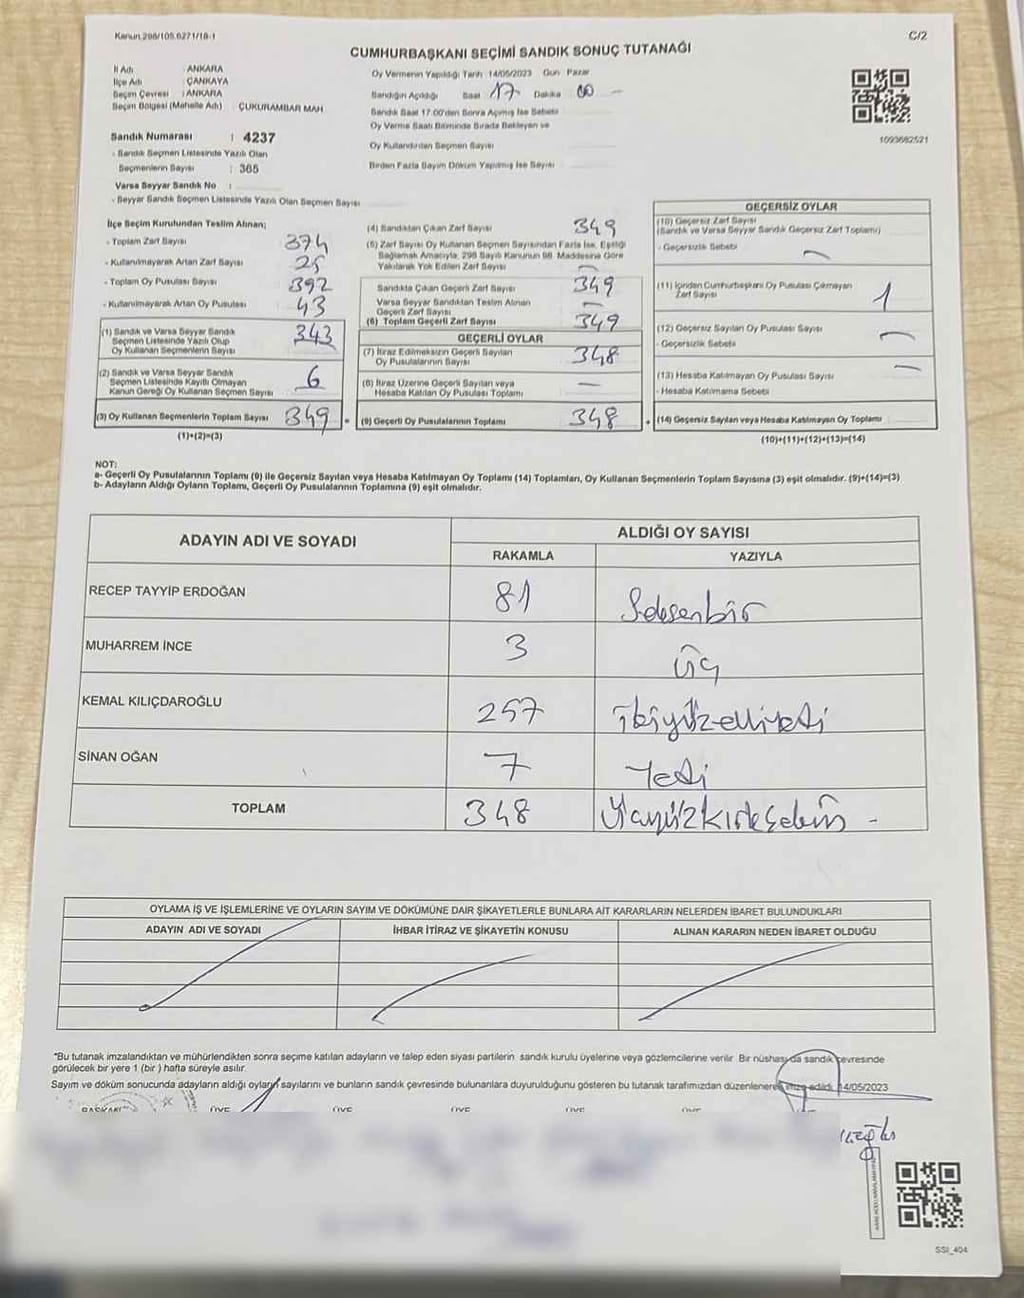 Kanun.298/105.6271/18-1
C/2
CUMHURBAŞKANI SEÇİMİ SANDIK SONUÇ TUTANAĞI
İl Adı : ANKARA
İlçe Adı : ÇANKAYA
Seçim Çevresi : ANKARA
Seçim Bölgesi (Mahalle Adı) : ÇUKURAMBAR MAH.
Oy Vermenin Yapıldığı Tarih 14/05/2023 Gün Pazar
Sandığın Açıldığı Saat 17 Dakika 00
Sandık Saat 17:00'den Sonra Açılmış İse Sebebi
Oy Verme Saati Bitiminde Sırada Bekleyen ve
Oy Kullandırılan Seçmen Sayısı
Birden Fazla Sayım Döküm Yapılmış İse Sayısı
1093682521
Sandık Numarası : 4237
- Sandık Seçmen Listesinde Yazılı Olan
Seçmenlerin Sayısı : 365
Varsa Seyyar Sandık No :
- Seyyar Sandık Seçmen Listesinde Yazılı Olan Seçmen Sayısı
İlçe Seçim Kurulundan Teslim Alınan;
- Toplam Zarf Sayısı 374
- Kullanılmayarak Artan Zarf Sayısı 25
- Toplam Oy Pusulası Sayısı 392
- Kullanılmayarak Artan Oy Pusulası 43
(1) Sandık ve Varsa Seyyar Sandık
Seçmen Listesinde Yazılı Olup
Oy Kullanan Seçmenlerin Sayısı 343
(2) Sandık ve Varsa Seyyar Sandık
Seçmen Listesinde Kayıtlı Olmayan
Kanun Gereği Oy Kullanan Seçmen Sayısı 6
(3) Oy Kullanan Seçmenlerin Toplam Sayısı 349 =
(1)+(2)=(3)
(4) Sandıktan Çıkan Zarf Sayısı 349
(5) Zarf Sayısı Oy Kullanan Seçmen Sayısından Fazla İse, Eşitliği
Sağlamak Amacıyla, 298 Sayılı Kanunun 98. Maddesine Göre
Yakılarak Yok Edilen Zarf Sayısı —
Sandıkta Çıkan Geçerli Zarf Sayısı 349
Varsa Seyyar Sandıktan Teslim Alınan
Geçerli Zarf Sayısı —
(6) Toplam Geçerli Zarf Sayısı 349
GEÇERLİ OYLAR
(7) İtiraz Edilmeksizin Geçerli Sayılan
Oy Pusulalarının Sayısı 348
(8) İtiraz Üzerine Geçerli Sayılan veya
Hesaba Katılan Oy Pusulası Toplamı —
(9) Geçerli Oy Pusulalarının Toplamı 348 +
GEÇERSİZ OYLAR
(10) Geçersiz Zarf Sayısı
(Sandık ve Varsa Seyyar Sandık Geçersiz Zarf Toplamı)
- Geçersizlik Sebebi —
(11) İçinden Cumhurbaşkanı Oy Pusulası Çıkmayan
Zarf Sayısı 1
(12) Geçersiz Sayılan Oy Pusulası Sayısı
- Geçersizlik Sebebi —
(13) Hesaba Katılmayan Oy Pusulası Sayısı —
- Hesaba Katılmama Sebebi
(14) Geçersiz Sayılan veya Hesaba Katılmayan Oy Toplamı
(10)+(11)+(12)+(13)=(14)
NOT:
a- Geçerli Oy Pusulalarının Toplamı (9) ile Geçersiz Sayılan veya Hesaba Katılmayan Oy Toplamı (14) Toplamları, Oy Kullanan Seçmenlerin Toplam Sayısına (3) eşit olmalıdır. (9)+(14)=(3)
b- Adayların Aldığı Oyların Toplamı, Geçerli Oy Pusulalarının Toplamına (9) eşit olmalıdır.
ADAYIN ADI VE SOYADI
ALDIĞI OY SAYISI
RAKAMLA YAZIYLA
RECEP TAYYİP ERDOĞAN 81 Seksenbir
MUHARREM İNCE 3 üç
KEMAL KILIÇDAROĞLU 257 ikiyüzelliyedi
SİNAN OĞAN 7 Yedi
TOPLAM 348 Üçyüzkırksekiz -
OYLAMA İŞ VE İŞLEMLERİNE VE OYLARIN SAYIM VE DÖKÜMÜNE DAİR ŞİKAYETLERLE BUNLARA AİT KARARLARIN NELERDEN İBARET BULUNDUKLARI
ADAYIN ADI VE SOYADI İHBAR İTİRAZ VE ŞİKAYETİN KONUSU ALINAN KARARIN NEDEN İBARET OLDUĞU
*Bu tutanak imzalandıktan ve mühürlendikten sonra seçime katılan adayların ve talep eden siyasi partilerin, sandık kurulu üyelerine veya gözlemcilerine verilir. Bir nüshası da sandık çevresinde
görülecek bir yere 1 (bir ) hafta süreyle asılır.
Sayım ve döküm sonucunda adayların aldığı oyların sayılarını ve bunların sandık çevresinde bulunanlara duyurulduğunu gösteren bu tutanak tarafımızdan düzenlenerek imza edildi. 14/05/2023
BAŞKAN ÜYE ÜYE ÜYE ÜYE ÜYE
SSI_404